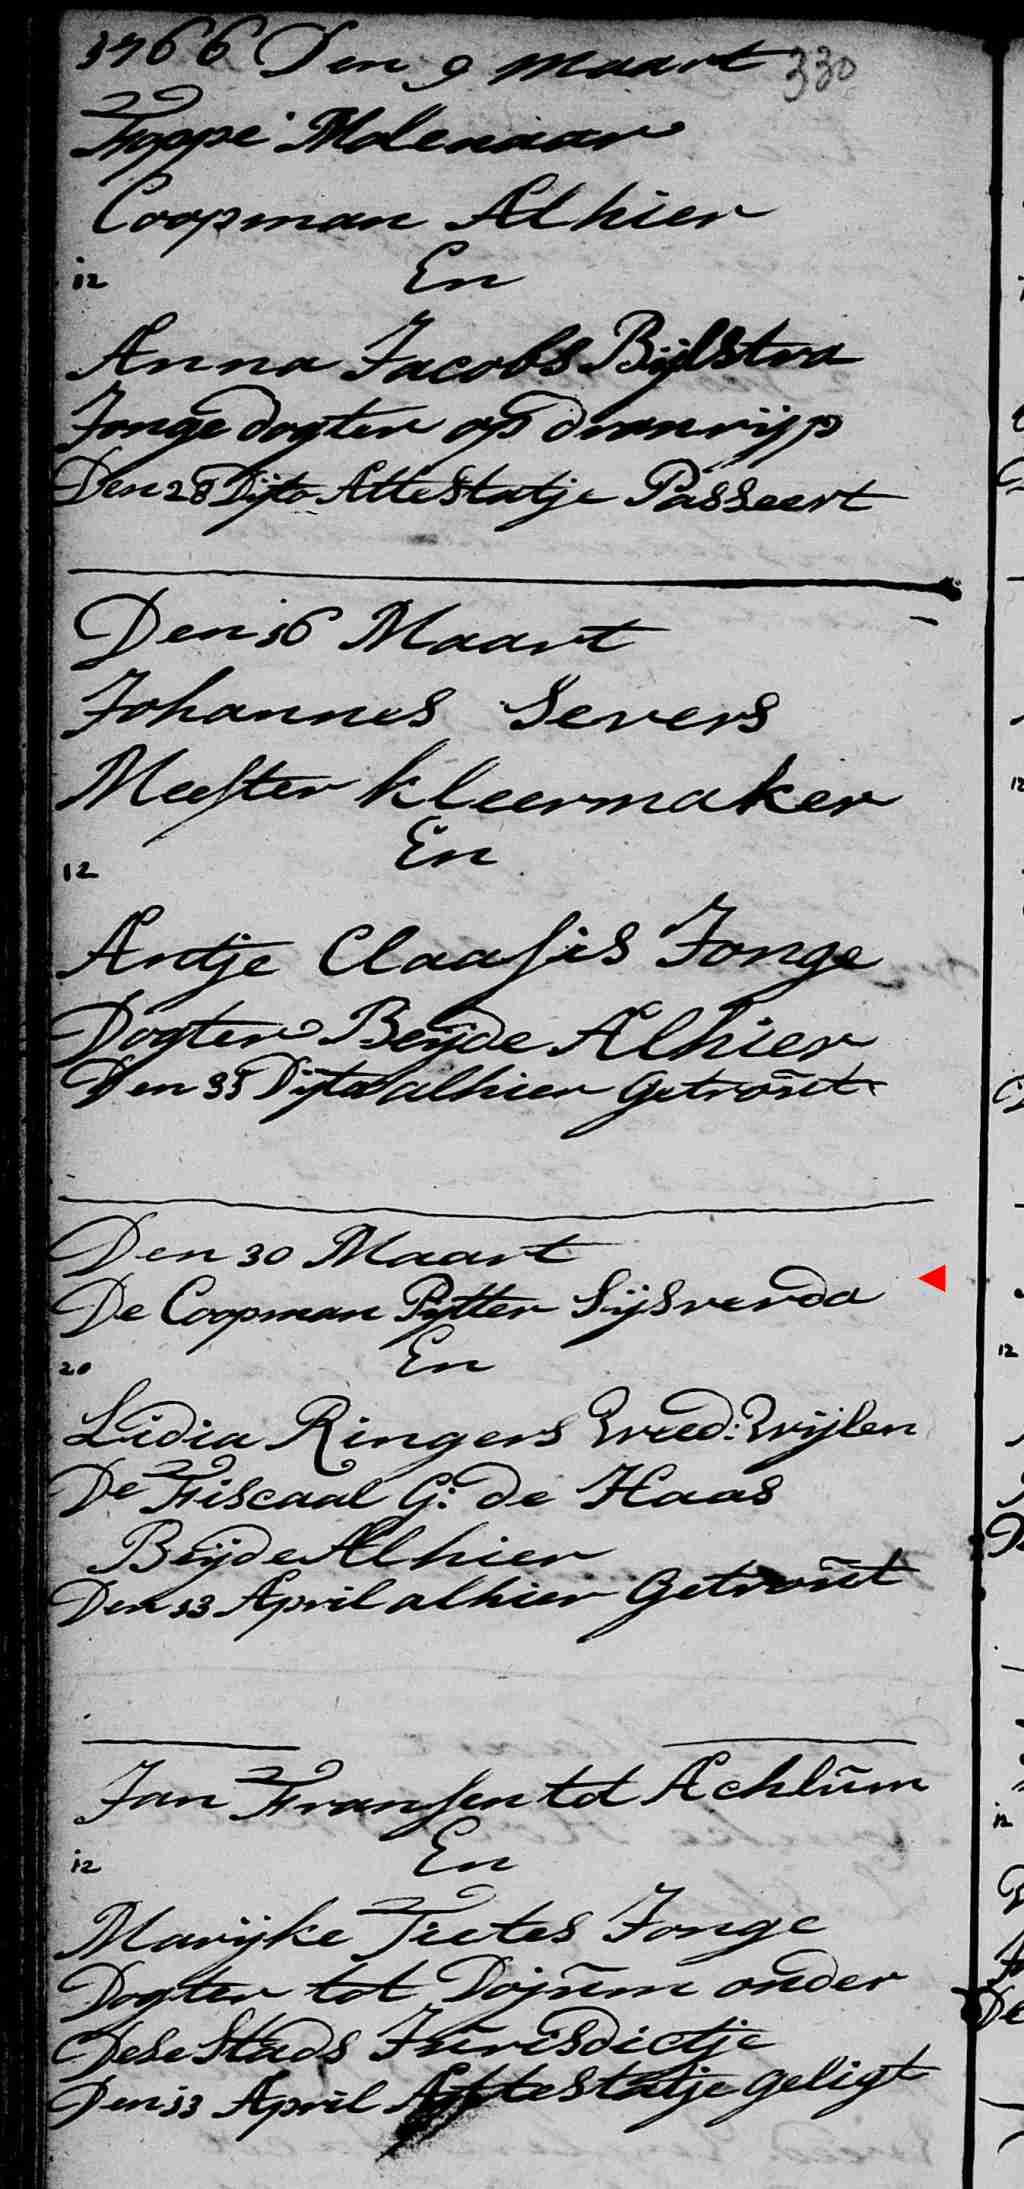 1766 Den 9 Maart 330
Foppe Molenaar
Coopman Alhier
12 En
Anna Jacobs Bijlstra
Jonge dogter op dronrijp
Den 28 Dijto Attestatje Passeert
Den 16 Maart
Johannes Severs
Meester kleermaker
En
12
Antje Claasses Jonge
Dogter Beijde Alhier
Den Dijto alhier Getrout
Den 30 Maart
De Coopman Pijtter Sijsverda
20 En
Lidia Ringers Wed: Wijlen
De Fiscaal G: de Haas
Beijde Alhier
Den 13 April alhier Getrout
Jan Fransen tot Achlum
12 En
Marijke Tietes Jonge
Dogter tot Dojum onder
Dese Stads Jurisdictje
Den 13 April Attestatje geligt